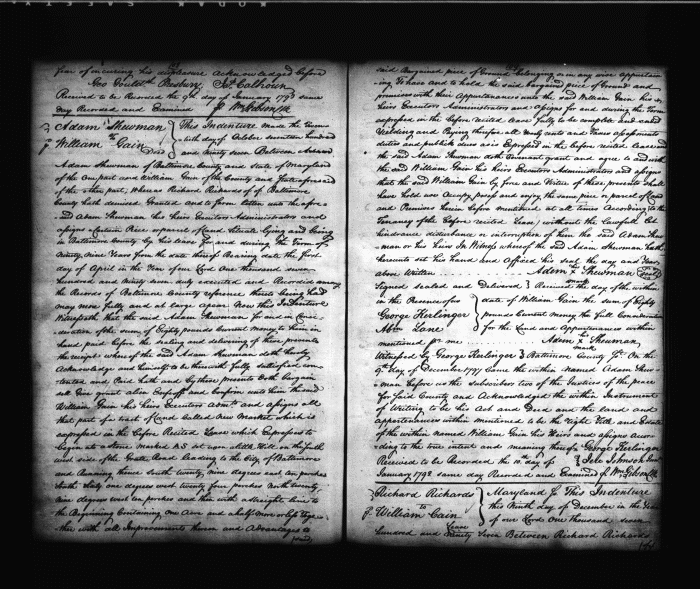 fear of incurring his displeasure Acknowledged before
Geo Gouldsth Presbury Js Calhoun
Received to be Recorded the 9th day of January 1798 same
day Recorded and Examined Wm Gibson Clk
Adam Shewman
to
William Gain
Deed
This Indenture made the
day of October seventeen hundred
and ninety seven Between Adam
Adam Shewman of Baltimore County and State of Maryland
of the one part and William Gain of the County and State aforesaid
of the other part, Whereas Richard Richards of Baltimore
County hath demised Granted and to farm letten unto the afore
said Adam Shewman his heirs Executors Administrators and
assigns a Certain Piece or parcel of Land Situate lying and being
in Baltimore County by his lease for and during the Term of
Ninety Nine Years from the date thereof Bearing date the first
day of April in the Year of our Lord One thousand seven
hundred and Ninety seven duly executed and Recorded among
the Records of Baltimore County reference thereto being had
may more fully and at large appear Now this Indenture
Witnesseth that the said Adam Shewman for and in Consi-
deration of the sum of Eighty pounds Current money to him in
hand paid before the sealing and delivering of these presents
the receipt whereof the said Adam Shewman doth hereby
Acknowledge and himself to be therewith fully satisfied con-
tented and Paid hath and by these presents doth bargain
sell Give grant alien Enfeoff and Confirm unto him the said
William Gain his heirs Executors Admrs and assigns all
that part of a tract of Land Called New Market which is
expressed in the before Recited Lease which Expresses to
begin at a stone Marked on the South
west side of the Great Road leading to the City of Baltimore
and Running thence South twenty nine degrees east ten perches
South sixty one degrees west twenty four perches North twenty
nine degrees west ten perches and then with a straight line to
the Beginning Containing One Acre and a half more or less toge-
ther with all Improvements thereon and Advantages to
said Bargained piece of Ground belonging or in any wise appertain-
ing To have and to hold the said bargained piece of Ground and
premises with their Appurtenances unto the said William Gain his
heirs Executors Administrators and assigns for and during the Term
expressed in the before recited lease fully to be complete and ended
Yielding and Paying therefor all Yearly rents and Taxes
duties and publick dues as is Expressed in the before recited lease and
the said Adam Shewman doth Covenant grant and agree to and with
the said William Gain his heirs Executors Administrators and assigns
that the said William Gain by force and Virtue of these presents shall
have hold use Occupy possess and enjoy the same piece or parcel of Land
and Premises herein before mentioned at all times According to the
Tenancy of the before recited lease without the lawful Let
hindrance disturbance or interruption of him the said Adam Shew-
man or his heirs In Witness whereof the said Adam Shewman hath
hereunto set his hand and Affixed his seal the day and Year
above Written Adam x Shewman Seal
mark
Signed sealed and Delivered
in the Presence of us
George Kerlinger
Abm Lane
Received the day of the within
date of William Gain the sum of Eighty
pounds Current Money the full Consideration
for the Land and Appurtenances within
mentioned per me Adam x Shewman
mark
Witnessed by George Kerlinger Baltimore County Sc. On the
9th Day of December 1797 Came the within Named Adam Shew-
man before us the subscribers two of the Justices of the peace
for said County and Acknowledged the within Instrument
of Writing to be his Act and Deed and the land and
appurtenances within mentioned to be the right Title and Estate
of the within named William Gain his Heirs and assigns Accor-
ding to the true intent and meaning thereof George Kerlinger
Received to be Recorded the 10th day of
January 1798 same day Recorded and Examined Wm Gibson Clk
Richard Richards
to
William Gain
Lease
Maryland Sc This Indenture
this Ninth day of December in the Year
of our Lord One thousand seven
hundred and Ninety Seven Between Richard Richards